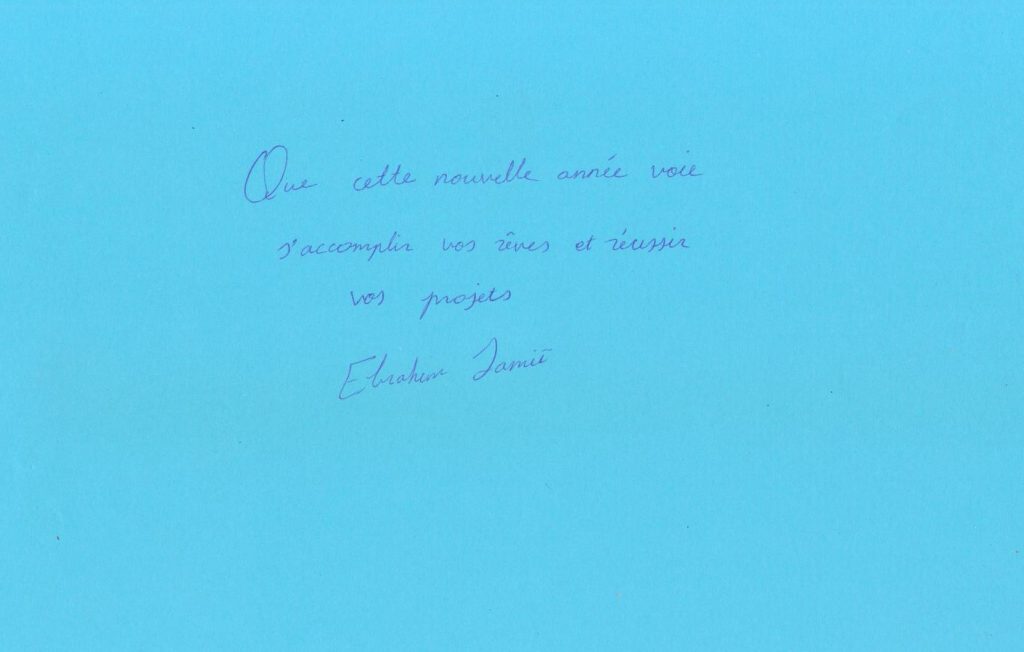 Que cette nouvelle année voie
s'accomplir vos rêves et réussir
vos projets
Ebrahem